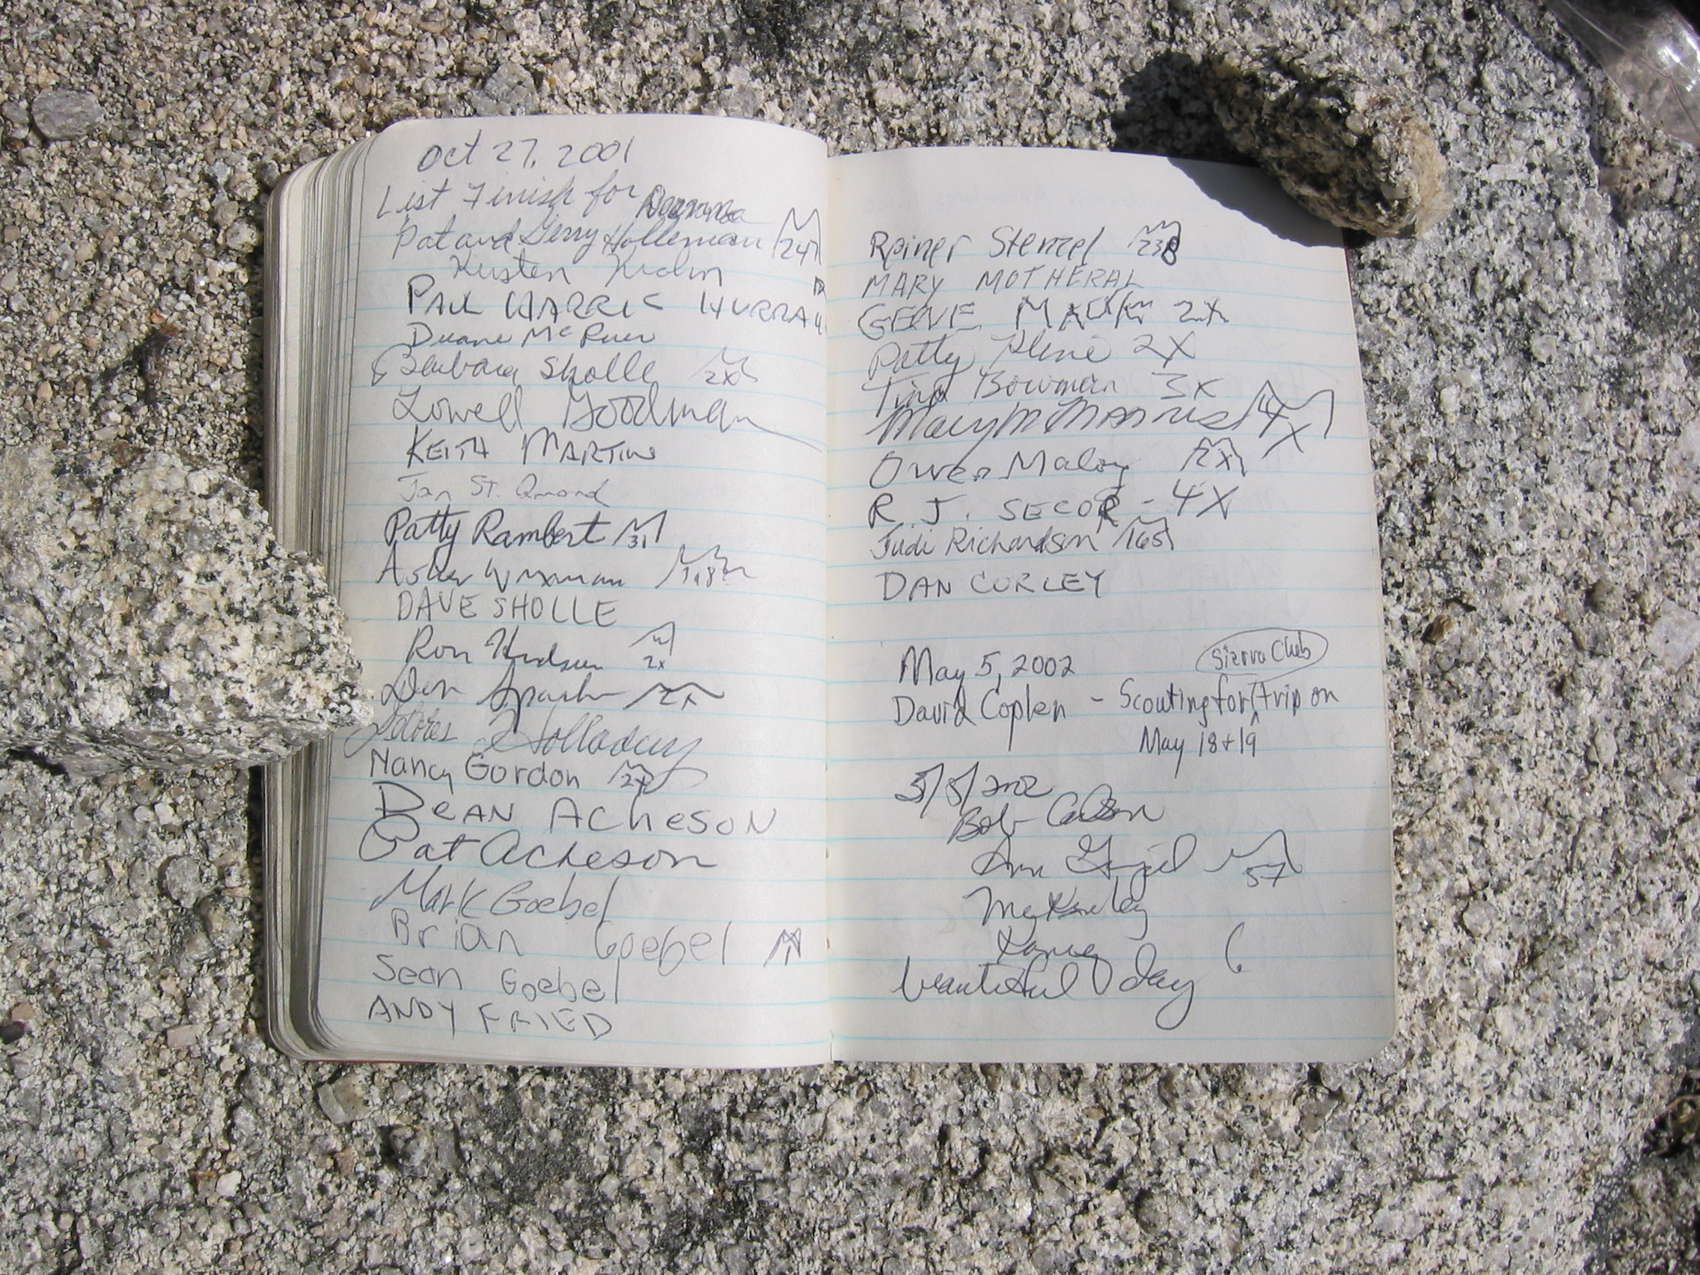 Oct 27, 2001
List Finish for
Pat and Gerry Holleman 247
Kirsten
PAUL HARRIS HURRAH
Duane McRuer
& Barbara Sholle 2x
Lowell Goodman
KEITH MARTIN
Jan St. Amand
Patty Rambert 31
Asher Waxman
DAVE SHOLLE
Ron Hudson 2x
Don Sparks 2x
Dolores Holladay
Nancy Gordon 2x
DEAN ACHESON
Pat Acheson
Mark Goebel
Brian Goebel
Sean Goebel
ANDY FRIED
Rainer Stenzel 238
MARY MOTHERAL
GENE 2x
Patty Kline 2X
Tina Bowman 3x
Mary McMannes 4x
Owen Maloy 2x
R. J. SECOR - 4X
Judi Richardson 165
DAN CURLEY
May 5, 2002
Sierra Club
David Coplen - Scouting for ^ trip on
May 18+19
5/5/2002
Bob Carlson
Ann 57
beautiful day